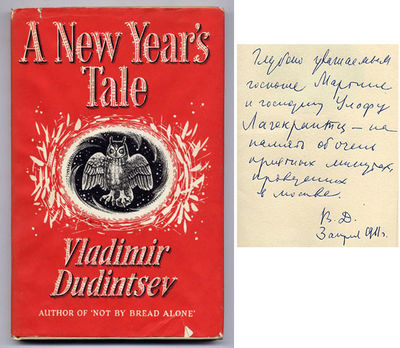 A New Year's
Tale
Vladimir
Dudintsev
AUTHOR OF 'NOT BY BREAD ALONE'
Глубоко уважаемым
госпоже Мартине
и господину Улофу
Лагеркранц — на
память об очень
приятных минутах,
проведенных
в Москве.
В. Д.
3 апреля